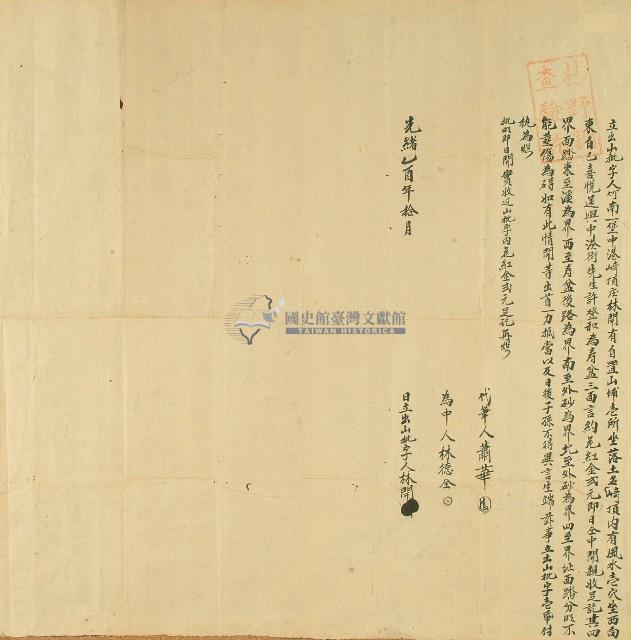 立出山批字人竹南一堡中港崎頂庄林開有自置山埔壹所坐落土名崎頂內有風水壹穴坐西向
東自己喜悅送與中港街先生許登和為壽盆三面言約花紅金弍元即日仝中開親收足訖其四
界面踏東至溪為界西至壽盆後路為界南至外砂為界北至外砂為界四至界址面踏分明不
能葬傷為碍如有此情開等出首一力抵當以及日後子孫不得異言生端滋事立出山批字壹帋付
執為照
批明即日開實收过山批字內花紅金弍元足訖再照
光緒乙酉年拾月
代筆人蕭華
為中人林德全
日立出山批字人林開
林野
查驗
國史館臺灣文獻館
TAIWAN HISTORICA